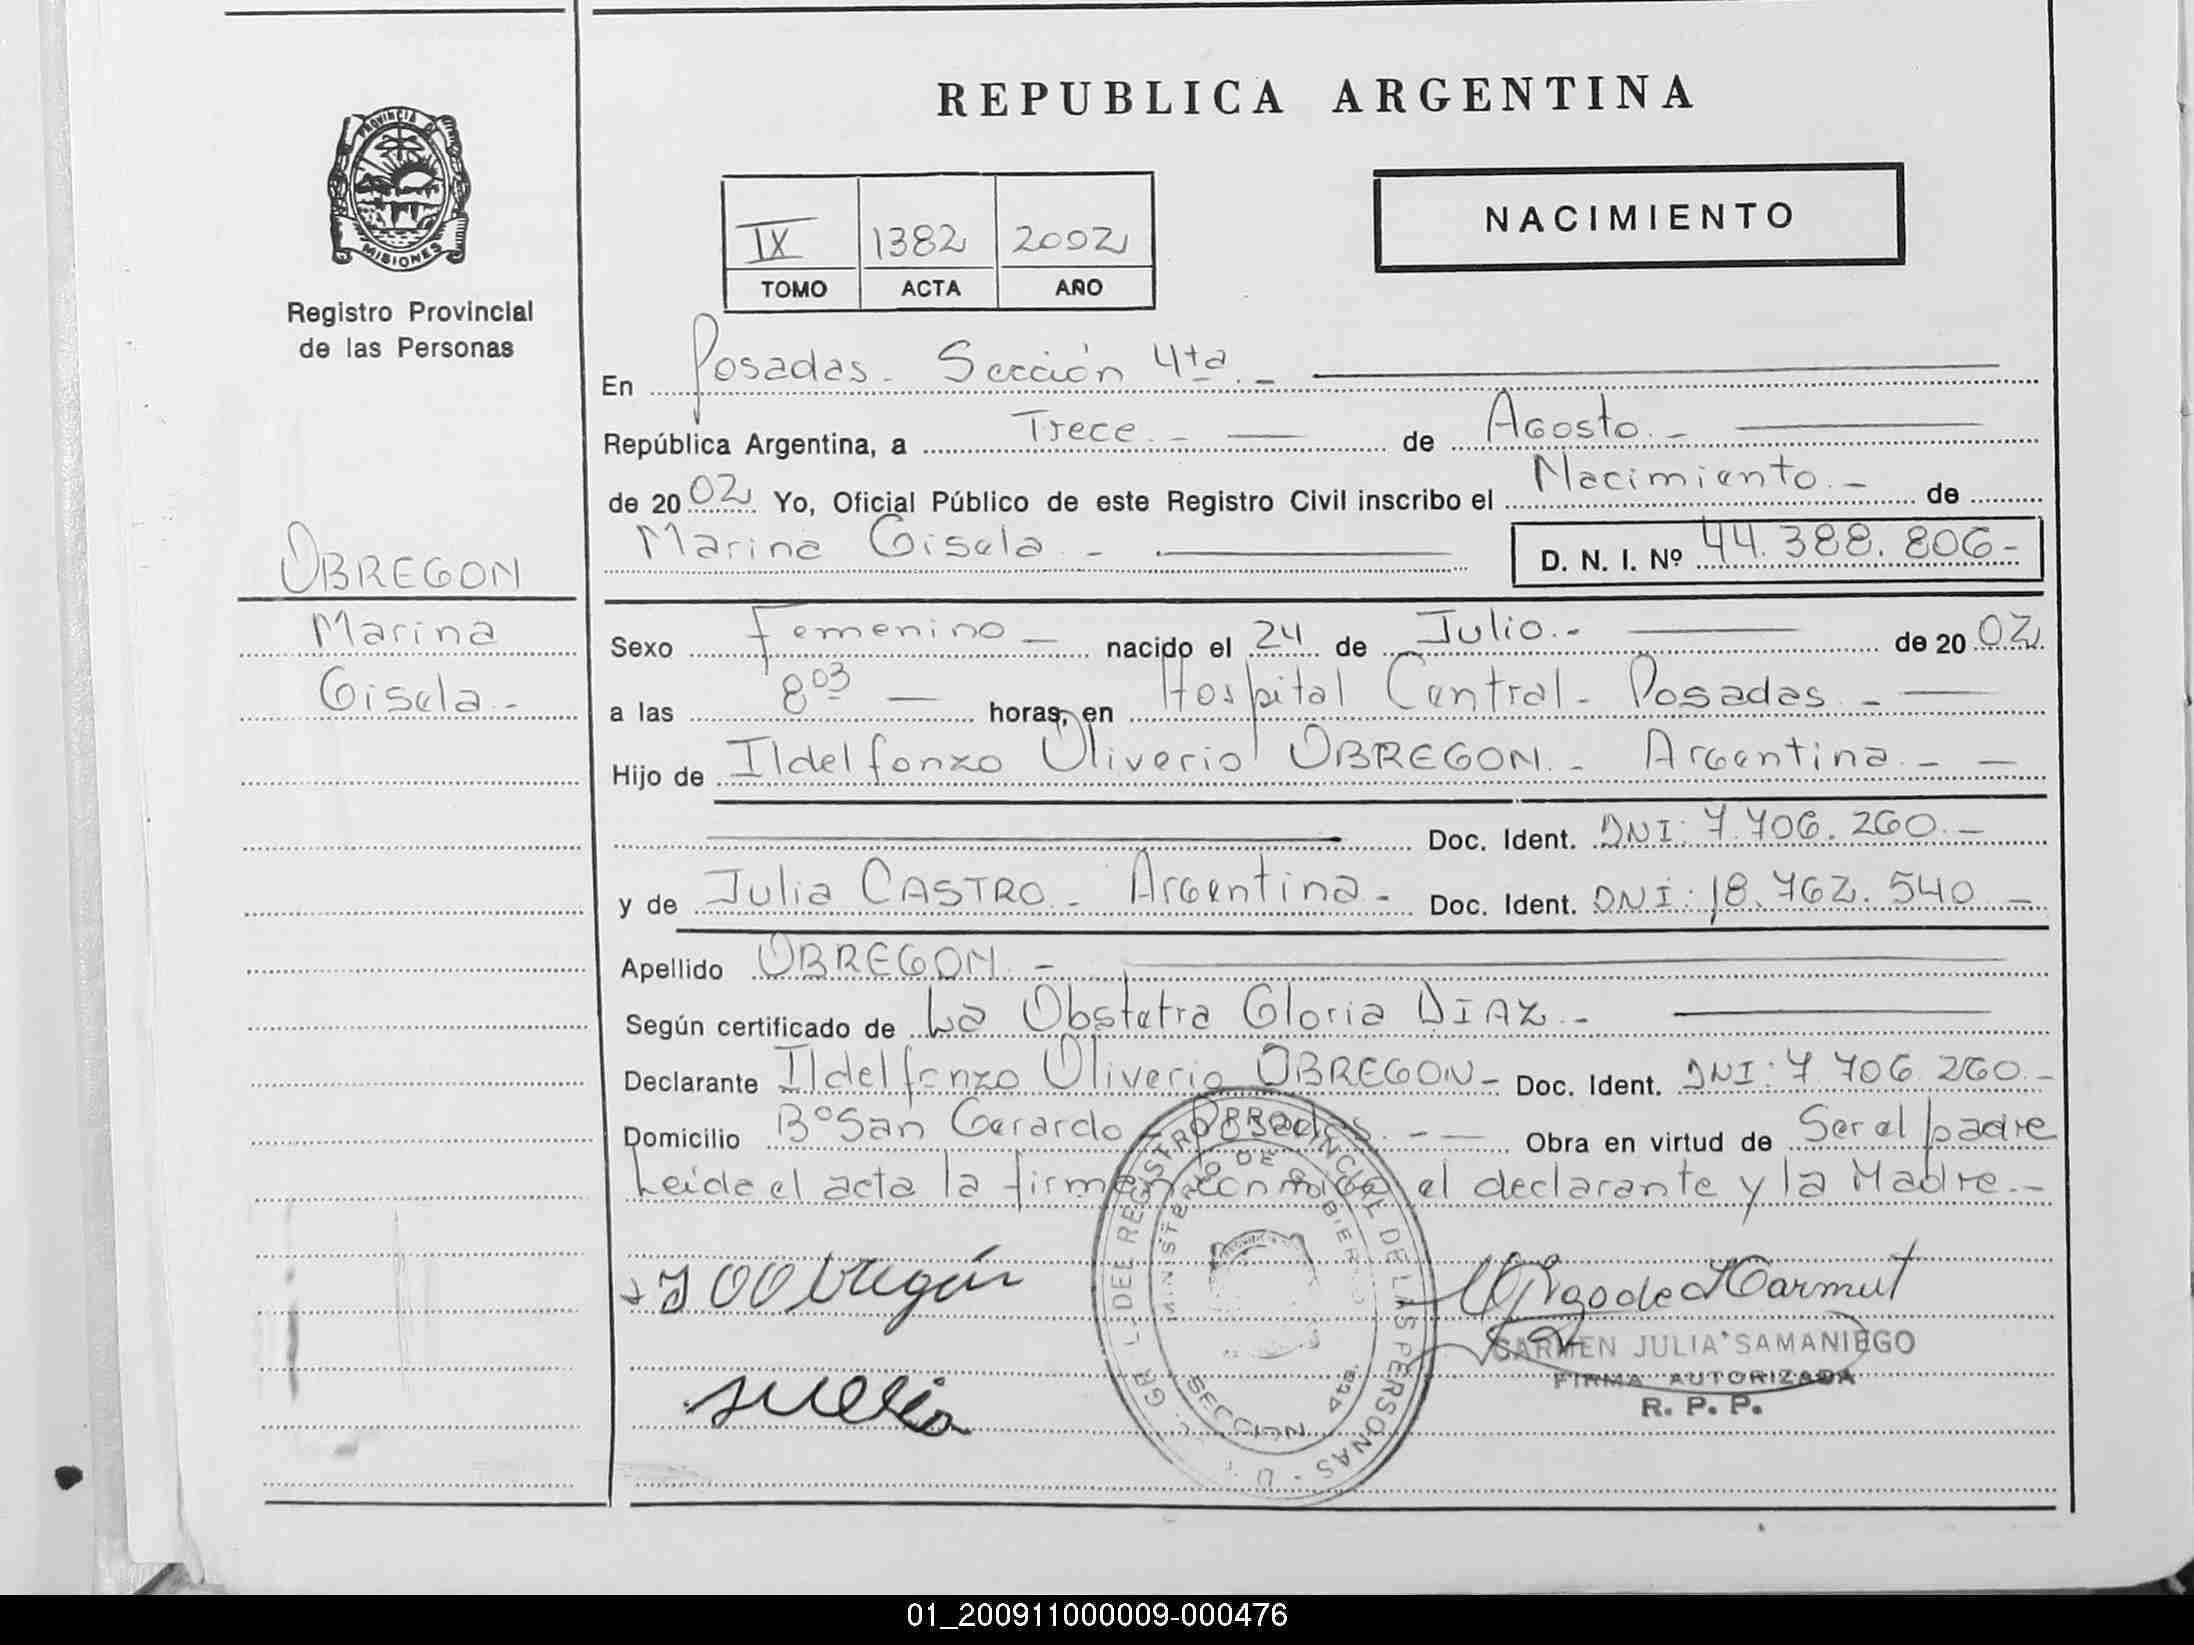 REPUBLICA ARGENTINA
PROVINCIA DE
MISIONES
Registro Provincial
de las Personas
IX 1382 2002
TOMO ACTA AÑO
NACIMIENTO
En Posadas - Sección 4ta. -
República Argentina, a Trece. - de Agosto. -
de 20 02 Yo, Oficial Público de este Registro Civil inscribo el Nacimiento. - de
Marina Gisela - D. N. I. Nº 44.388.806-
OBREGON
Marina
Gisela. -
Sexo Femenino - nacido el 24 de Julio. - de 20 02
a las 8 03 - horas, en Hospital Central - Posadas. -
Hijo de Ildelfonzo Oliverio OBREGON. - Argentina. - -
Doc. Ident. DNI: 7.706.260. -
y de Julia CASTRO - Argentina - Doc. Ident. DNI: 18.762.540 -
Apellido OBREGON. -
Según certificado de La Obstetra Gloria DIAZ. -
Declarante Ildelfonzo Oliverio OBREGON - Doc. Ident. DNI: 7.706.260. -
Domicilio Bº San Gerardo - Posadas. - - Obra en virtud de Ser el padre
Leida el acta la firman conmigo el declarante y la Madre. -
DEL REGISTRO PROVINCIAL DE LAS PERSONAS
MINISTERIO DE GOBIERNO
SECCION 4ta.
CARMEN JULIA SAMANIEGO
FIRMA AUTORIZADA
R. P. P.
01_200911000009-000476